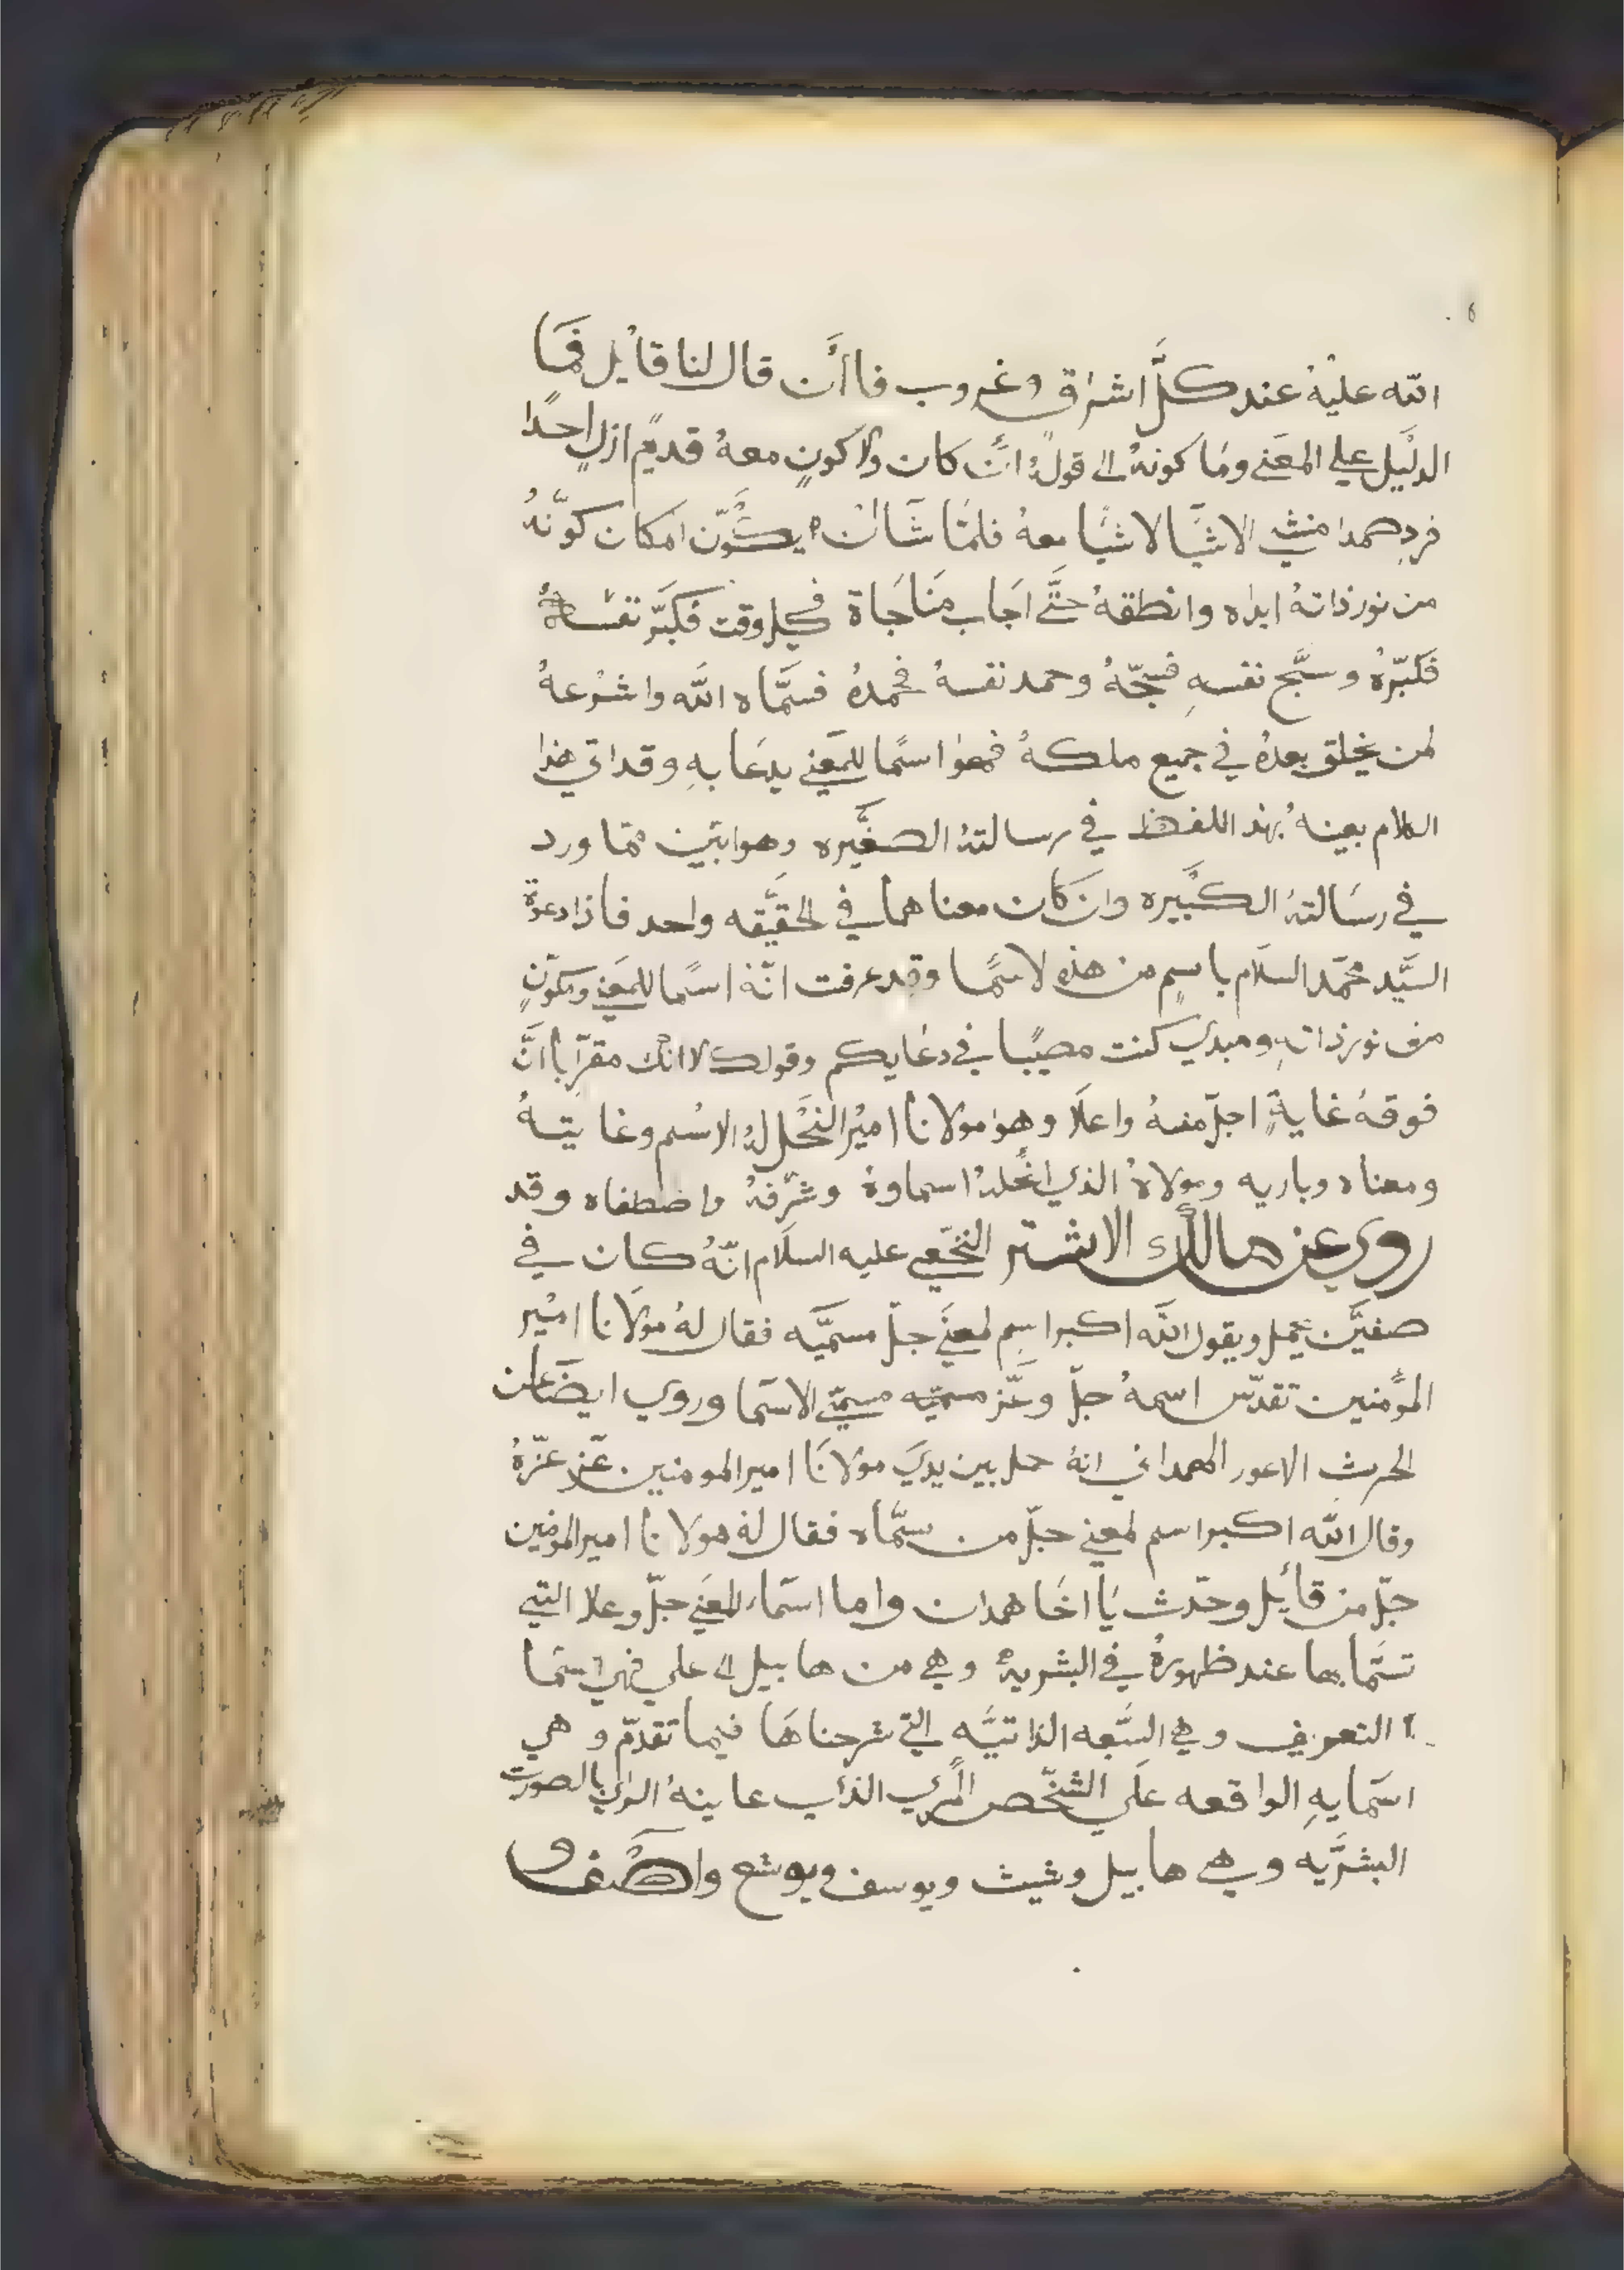 6
الله عليه عند كلَّ اشراق وغروب فاأن قال لنا قايل فما
الدليل علي المعني وما كونه الى قوله ان كان ولا كون معه قديم ازل احدًا
فرد صمدا منشي الاشيا لا شيًا معه فلمّا شا ان يكوّن امكان كونّه
من نور ذاته ابداه وانطقه حتَّى اجاب مناجاة في كل وقت فكبّر نفسه
فكبّرهُ وسبَّح نفسهِ فسبّحهُ وحمد نفسهُ فحمدهُ فسمَّاه الله واشرعهُ
لمن يخلق بعدهُ في جميع ملكهُ فهوا اسمًا للمعني يدعا بهِ وقد اتي هذا
الكلام بعينهُ بهذ اللفظ في رسالتهُ الصغيره وهو ابين ممّا ورد
في رسالتهُ الكبيره وان كان معناهما في الحقيقه واحد فاذا دعوة
السيَّد محمّد السلام باسمٍ من هذه لاسمًا وقد عرفت انّهُ اسمًا للمعني ومكوّنٍ
من نور ذاتهِ ومبدي كنت مصيبًا في دعايكم وقولك لاانك مقرّ باانَّ
فوقهُ غايةٍ اجلّ منهُ واعلا وهو مولانا امير النَّحل له الاسم وغايتهُ
ومعناه وباريه ومولاهُ الذي انحلهُ اسماوهُ وشرّفهُ واضطفاه وقد
روي عن مالك الاشتر النخّعي عليه السلام انّهُ كان في
صفيّن يحمل ويقول الله اكبر اسم لمعني جلّ مسميَّه فقال لهُ مولانا امير
المؤمنين تقدّس اسمهُ جلّ وعّز مسميّه مسمّي الاسما وروي ايضًا عن
الحرث الاعور الهمداني انهُ حمل بين يديَ مولانا امير المومنين عّز عّزهُ
وقال الله اكبر اسم لمعني جلّ من سمَّاه فقال لهُ مولانا امير المومنين
جلّ من قائيل وحدّث يا اخا همدان واما اسمّاء للمعني جلّ وعلا التي
تسمّا بها عند ظهورهُ في البشريهُ وهي من هابيل الى علي فهي اسمّا
التعريف وهي السّبعه الذاتيَّه التي شرحناها فيما تقدّم وهي
اسمايهِ الواقعه علَي الشّخص المري الذي عاينهُ الراي بالصورت
البشرّيه وهي هابيل وشيث ويوسف ويوشع واصف و